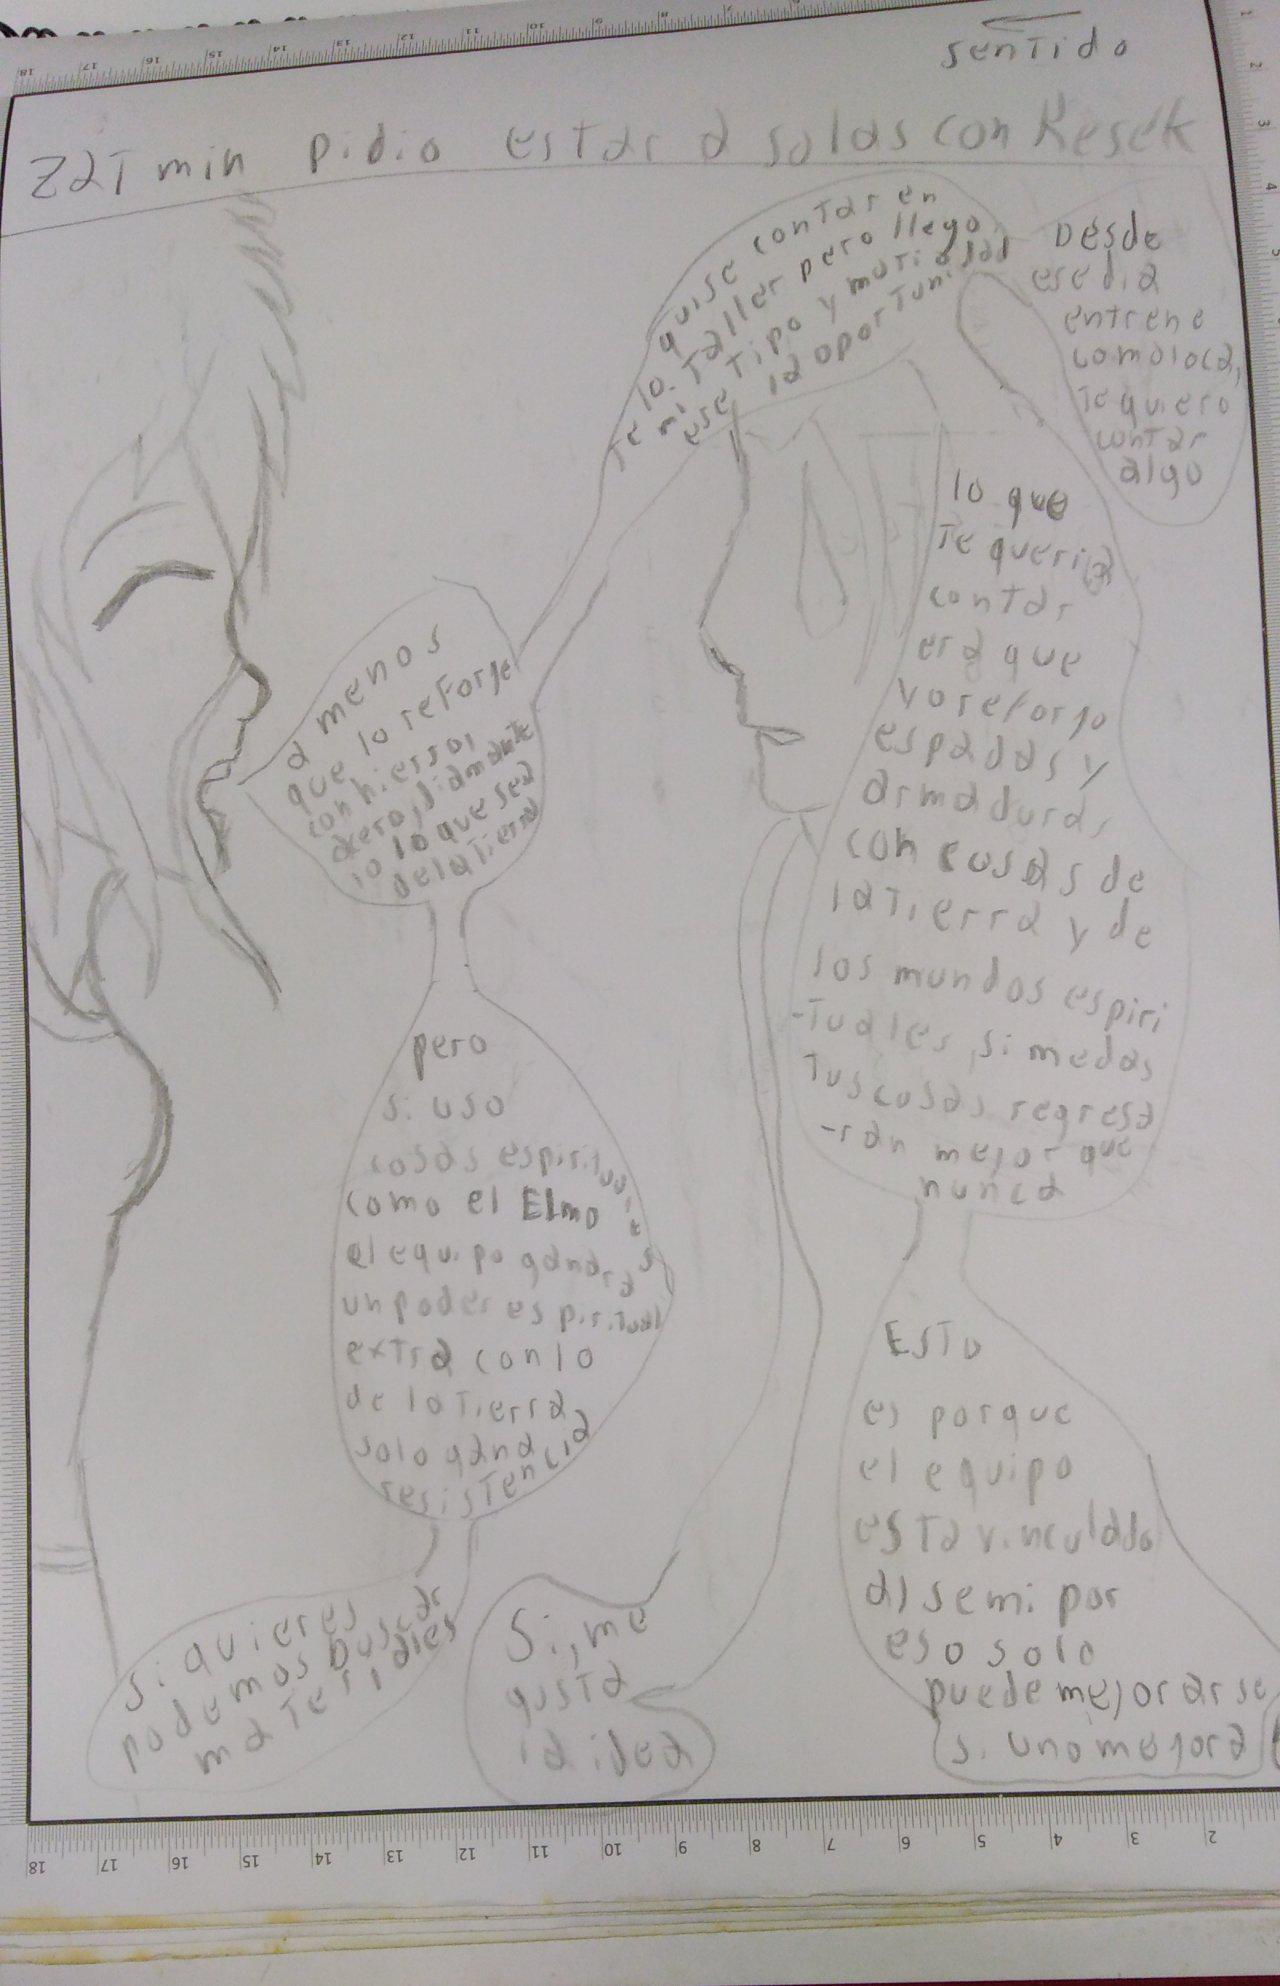 sentido
Zatmin pidio estar a solas con Kesek
Desde
ese dia
entrene
como loca,
te quiero
contar
algo
quise contar en
te lo. Taller pero llego
mi tipo y mato
ese la oportunidad
lo que
te queria
contar
era que
yo reforjo
espadas y
armaduras
con cosas de
la Tierra y de
los mundos espiri
-tuales, si me das
tus cosas regresa
-ran mejor que
nunca
Esto
es porque
el equipo
esta vinculado
al semi por
eso solo
puede mejorar se
si uno mejora
a menos
que lo reforje
con hierro,
acero, diamante
o lo que sea
de la tierra
pero
si uso
cosas espirituales
como el Elmo
el equipo ganara
un poder espiritual
extra con lo
de la Tierra
solo gana
resistencia
si quieres
podemos buscar
materiales
Si, me
gusta
la idea
18 17 16 15 14 13 12 11 10 9 8 7 6 5 4 3 2